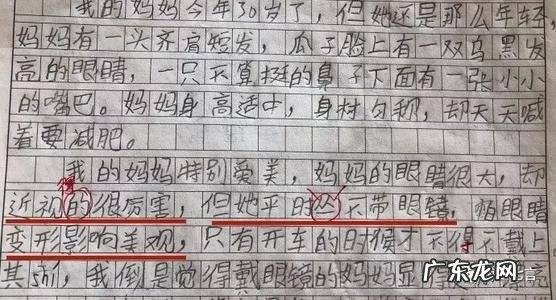 我的妈妈今年30岁了，但她还是那么年轻，
妈妈有一头齐肩短发，瓜子脸上有一双乌黑发
亮的眼睛，一只不算挺的鼻子下面有一张小小
的嘴巴。妈妈身高适中，身材匀称，却天天喊
着要减肥。
我的妈妈特别爱美，妈妈的眼睛很大，却
得
近视的很厉害，但她平时从不带眼镜，怕眼睛
变形影响美观，只有开车的时候才不得不戴上
其实，我倒是觉得戴眼镜的妈妈显得
广东龙网
www.gdlwl.com